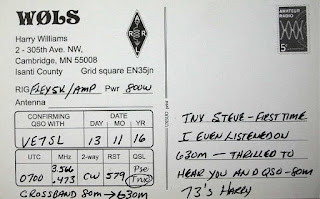 WØLS
Harry Williams
2 - 305th Ave. NW,
Cambridge, MN 55008
Isanti County Grid square EN35jn
RIG FLEX5K/AMP Pwr 800W
Antenna
CONFIRMING QSO WITH DATE DAY MO YR
VE7SL 13 11 16
UTC MHz 2-way RST QSL
0700 3.566 .473 CW 579 Pse Tnx
CROSSBAND 80m → 630m
A R R L
AMATEUR RADIO
5c
TNX STEVE - FIRST TIME
I EVEN LISTENED ON
630m — THRILLED TO
HEAR YOU AND QSO - 80m
73's HARRY